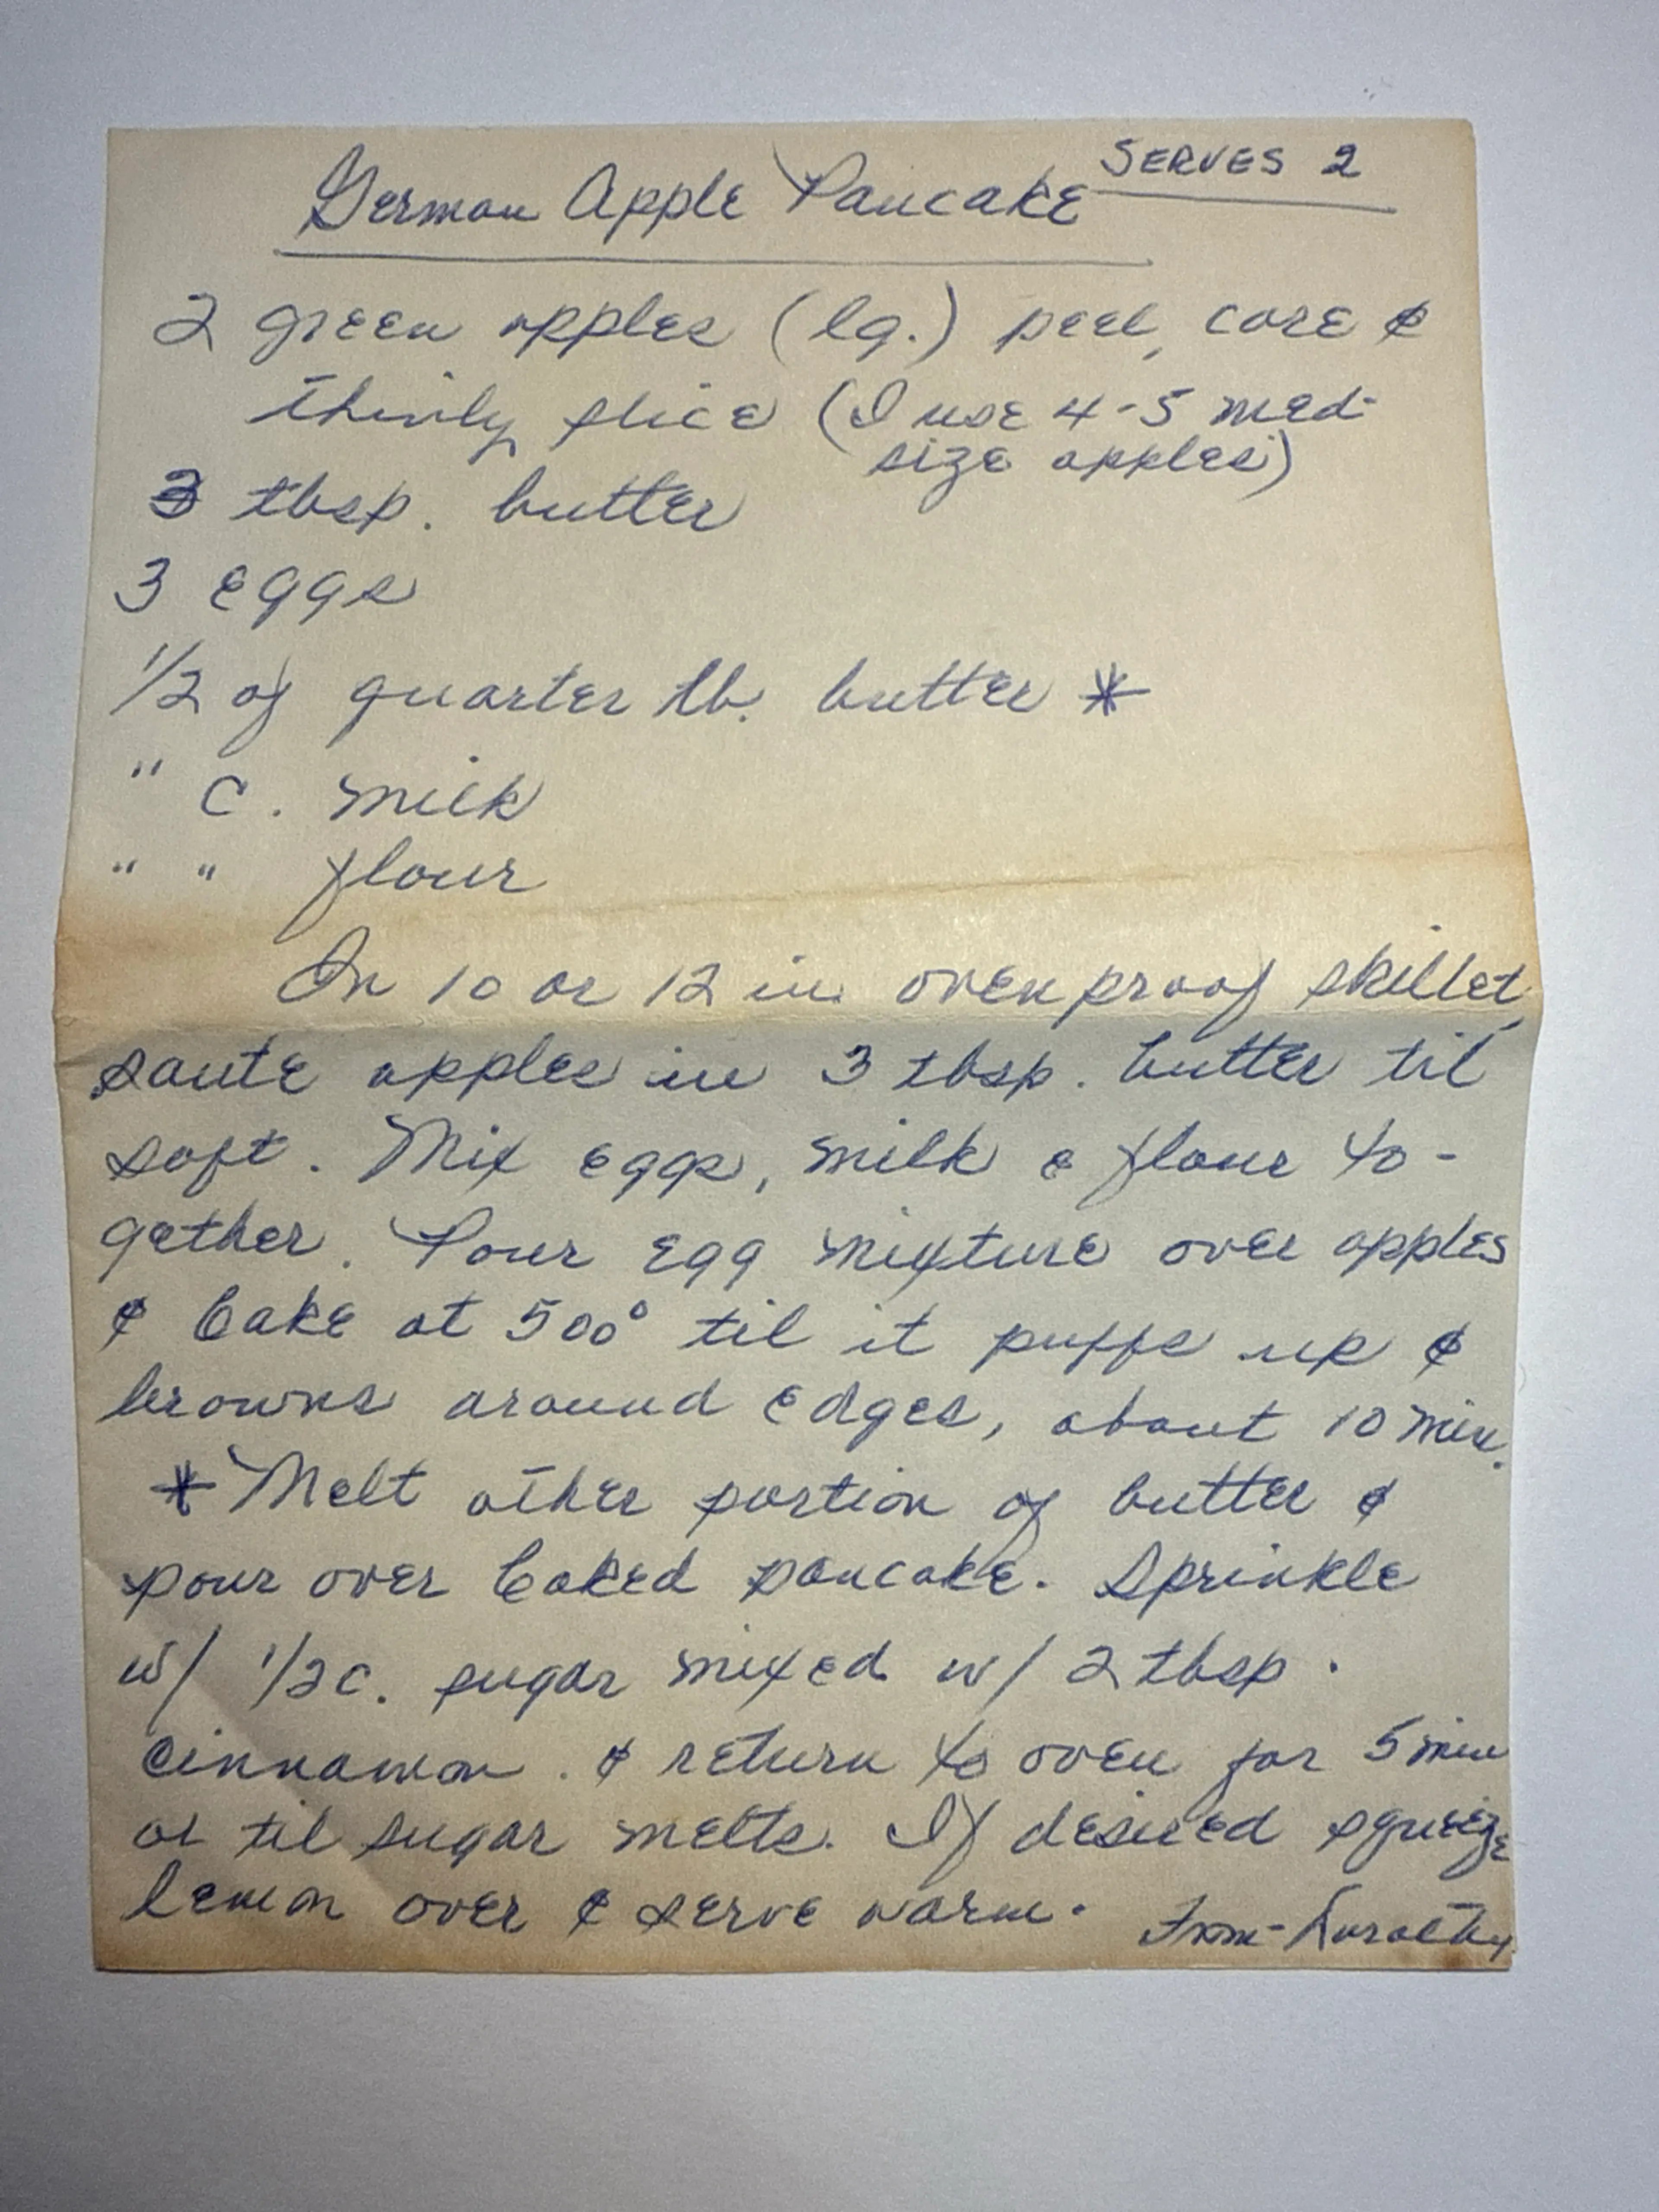 German Apple Pancake SERVES 2
2 green apples (lg.) peel, core &
thinly slice (I use 4-5 med-
size apples)
3 tbsp. butter
3 eggs
1/2 of quarter lb. butter *
" C. milk
" " flour
In 10 or 12 in ovenproof skillet,
saute apples in 3 tbsp. butter til
soft. Mix eggs, milk & flour to-
gether. Pour egg mixture over apples
& bake at 500° til it puffs up &
browns around edges, about 10 min.
* Melt other portion of butter &
pour over baked pancake. Sprinkle
w/ 1/2 c. sugar mixed w/ 2 tbsp.
cinnamon. & return to oven for 5 min
or til sugar melts. If desired squeeze
lemon over & serve warm. From - Dorothy